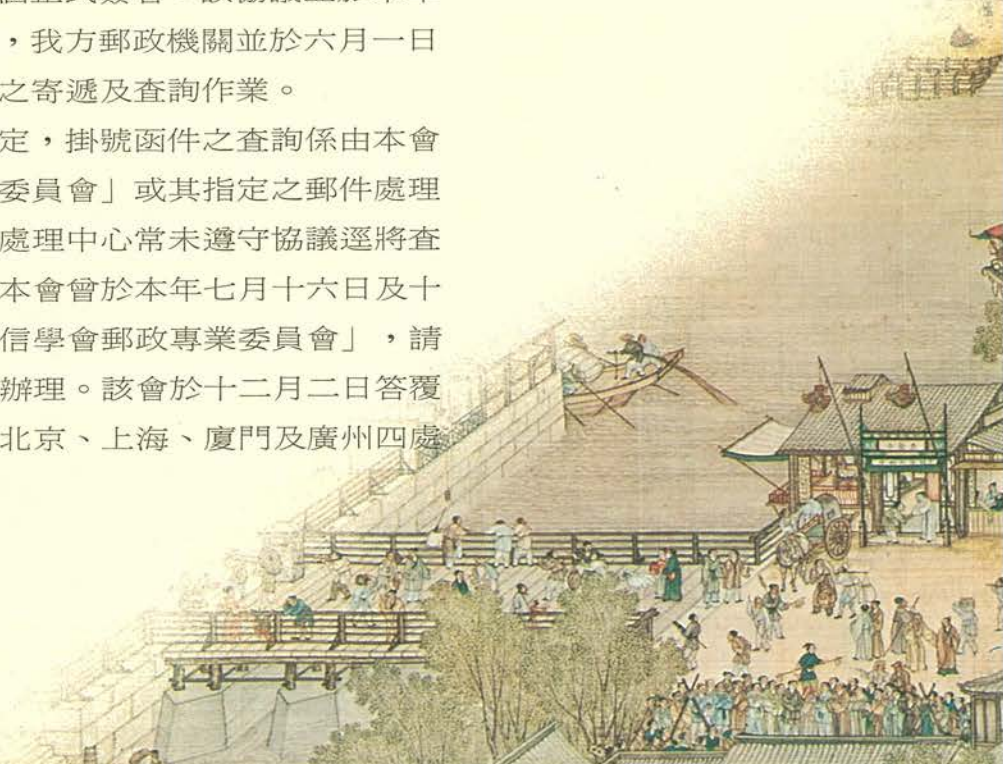 ，我方郵政機關並於六月一日
之寄遞及查詢作業。
定，掛號函件之查詢係由本會
委員會」或其指定之郵件處理
處理中心常未遵守協議逕將查
本會曾於本年七月十六日及十
信學會郵政專業委員會」，請
辦理。該會於十二月二日答覆
北京、上海、廈門及廣州四處